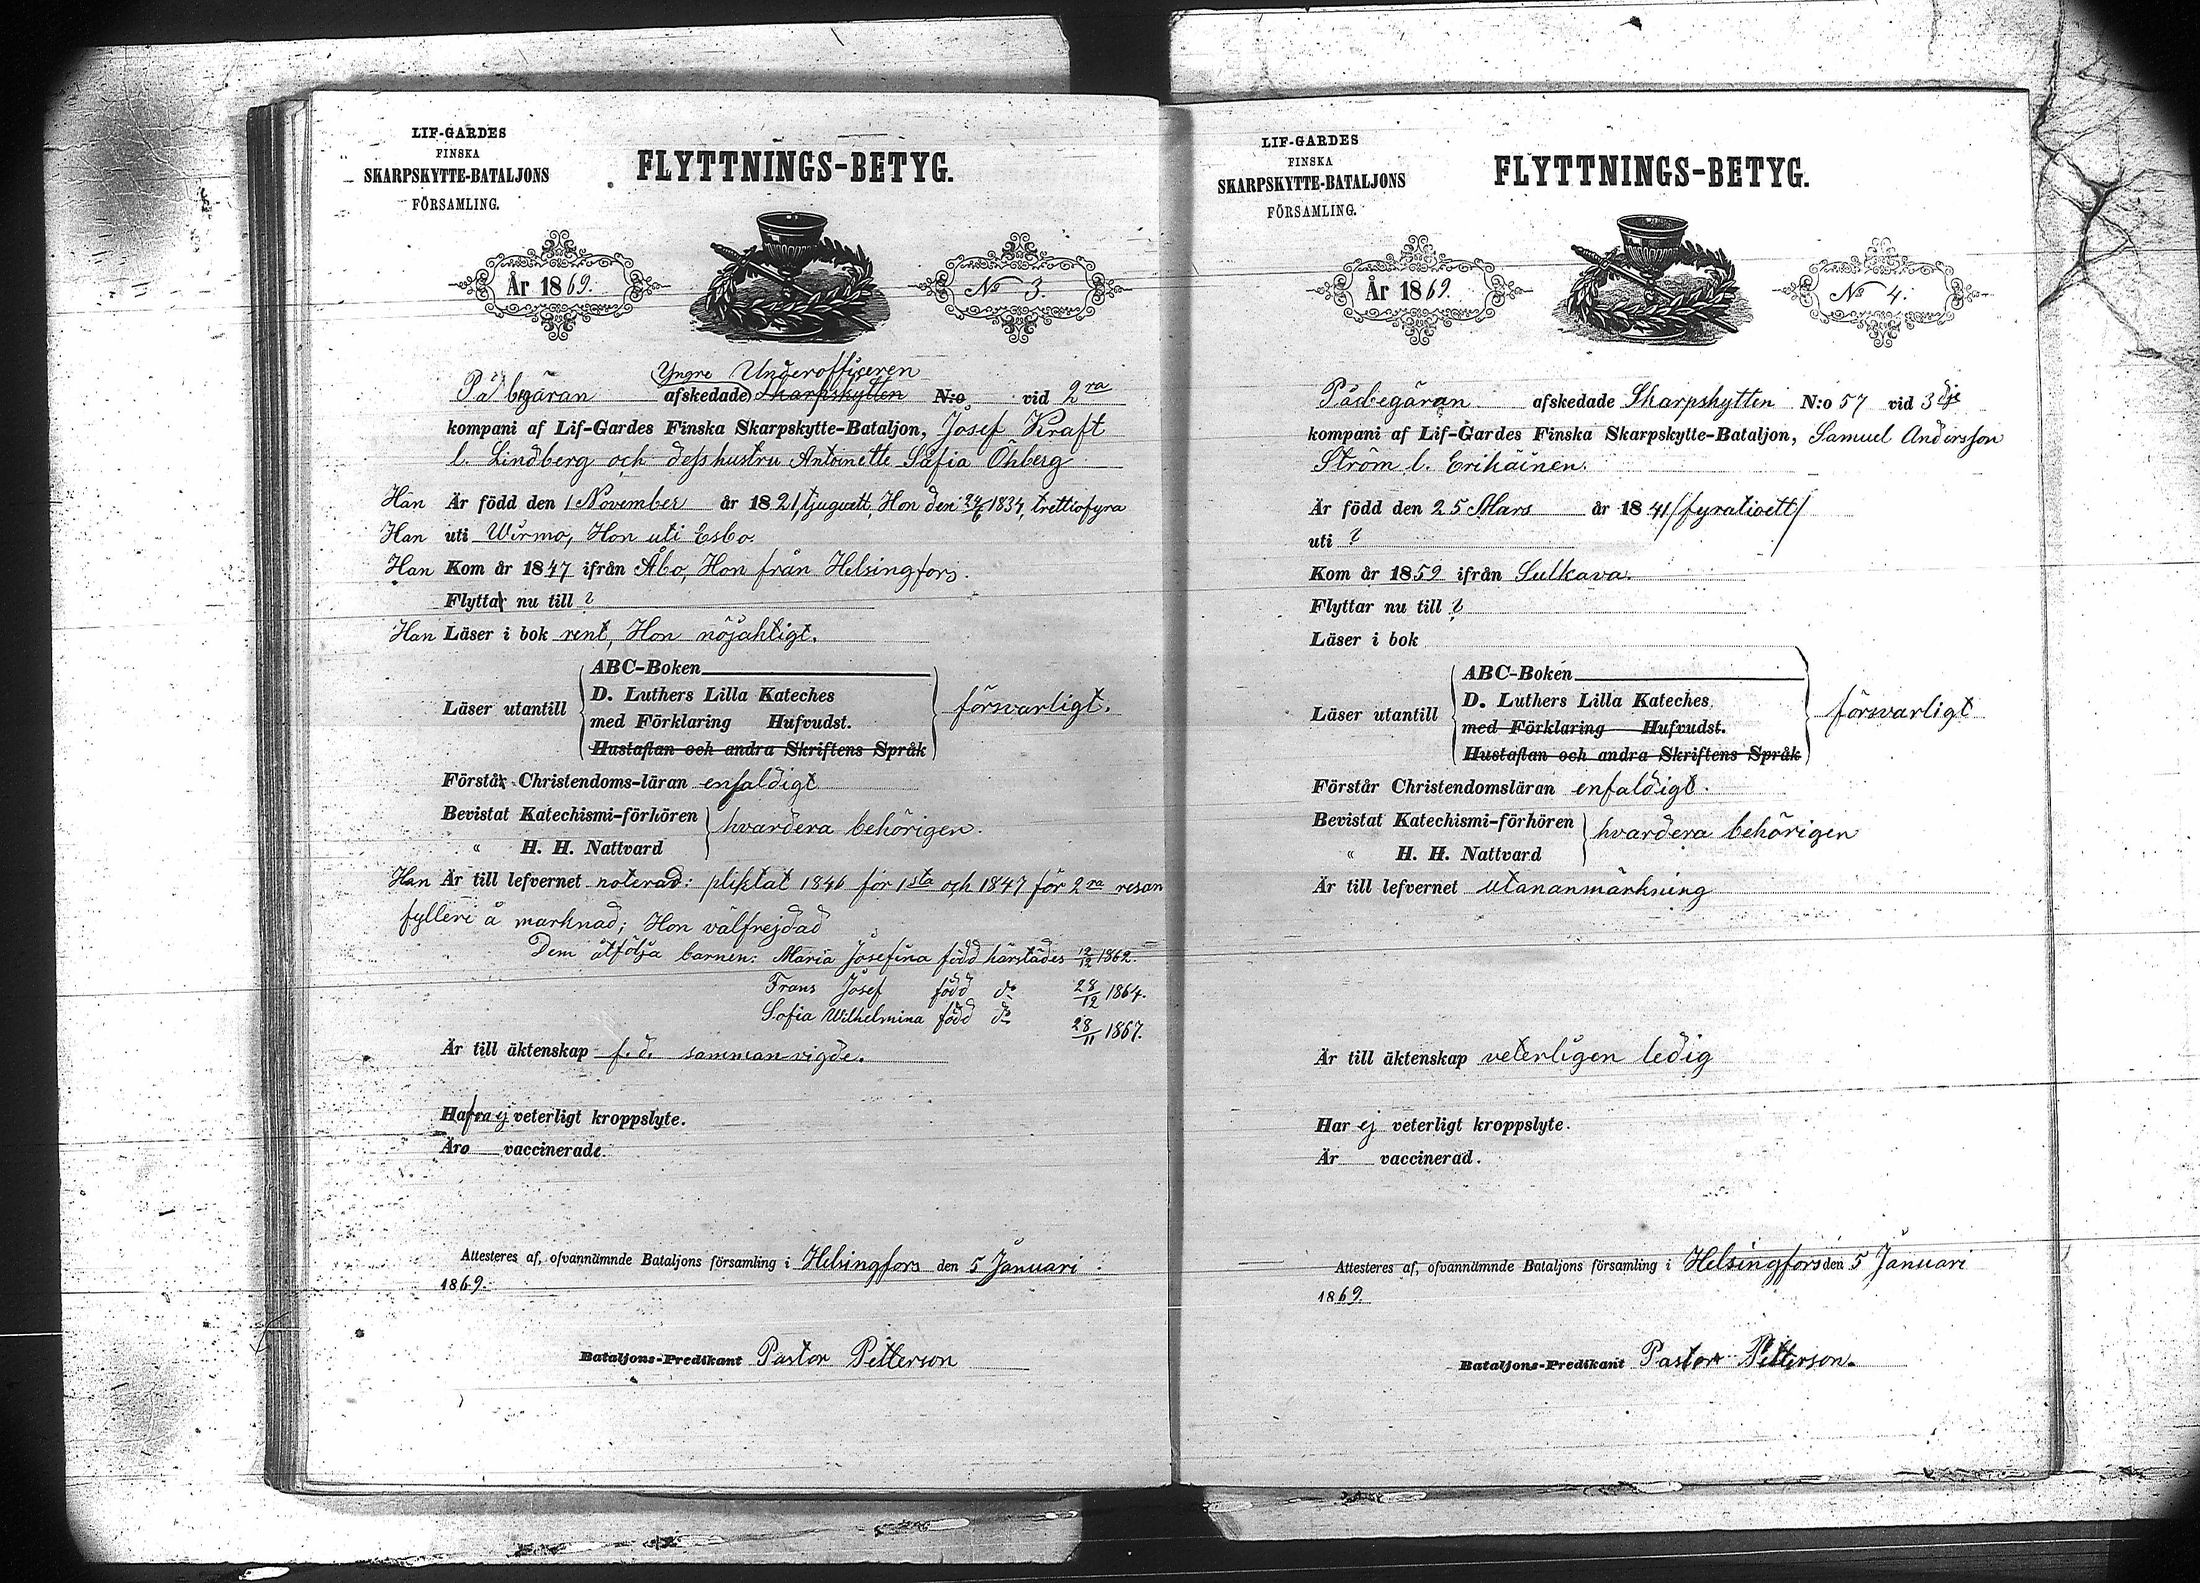 LIF-GARDES
FINSKA
SKARPSKYTTE-BATALJONS
FÖRSAMLING.
FLYTTNINGS-BETYG.
År 1869.
No 3.
Yngre Underofficeren
På begäran afskedade Skarpskytten N:o vid 2ra
kompani af Lif-Gardes Finska Skarpskytte-Bataljon, Josef Kraft
l. Lindberg och dess hustru Antoinette Sofia Öhberg
Han Är född den 1 November år 1821, tjuguett, Hon den 24/6 1834, trettiofyra
Han uti Wirmo, Hon uti Esbo.
Han Kom år 1847 ifrån Åbo, Hon från Helsingfors.
Flytta nu till ?
Han Läser i bok rent, Hon nöjaktigt.
Läser utantill
ABC-Boken
D. Luthers Lilla Kateches
med Förklaring Hufvudst.
Hustaflan och andra Skriftens Språk
försvarligt.
Förstå Christendoms-läran enfaldigt
Bevistat Katechismi-förhören
" H. H. Nattvard
hvardera behörigen.
Han Är till lefvernet noterad: pliktat 1846 för 1sta och 1847 för 2ra resan
fylleri å marknad; Hon välfrejdad
Dem åtfölja barnen: Maria Josefina född härstädes 12/12 1862.
Frans Josef född do 28/12 1864.
Sofia Wilhelmina född do 28/11 1867.
Är till äktenskap f.d. sammanvigde.
Hafva ej veterligt kroppslyte.
Äro vaccinerade.
Attesteres af, ofvannämnde Bataljons församling i Helsingfors den 5 Januari
1869.
Bataljons-Predikant Pastor Petterson
LIF-GARDES
FINSKA
SKARPSKYTTE-BATALJONS
FÖRSAMLING.
FLYTTNINGS-BETYG.
År 1869.
No 4.
På begäran afskedade Skarpskytten N:o 57 vid 3dje
kompani af Lif-Gardes Finska Skarpskytte-Bataljon, Samuel Andersson
Ström l. Erikäinen.
Är född den 25 Mars år 1841 /fyratioett/
uti ?
Kom år 1859 ifrån Sulkava.
Flyttar nu till ?
Läser i bok
Läser utantill
ABC-Boken
D. Luthers Lilla Kateches
med Förklaring Hufvudst.
Hustaflan och andra Skriftens Språk
försvarligt
Förstår Christendomsläran enfaldigt.
Bevistat Katechismi-förhören
" H. H. Nattvard
hvardera behörigen
Är till lefvernet utan anmärkning
Är till äktenskap veterligen ledig
Har ej veterligt kroppslyte.
Är vaccinerad.
Attesteres af, ofvannämnde Bataljons församling i Helsingfors den 5 Januari
1869.
Bataljons-Predikant Pastor Petterson.